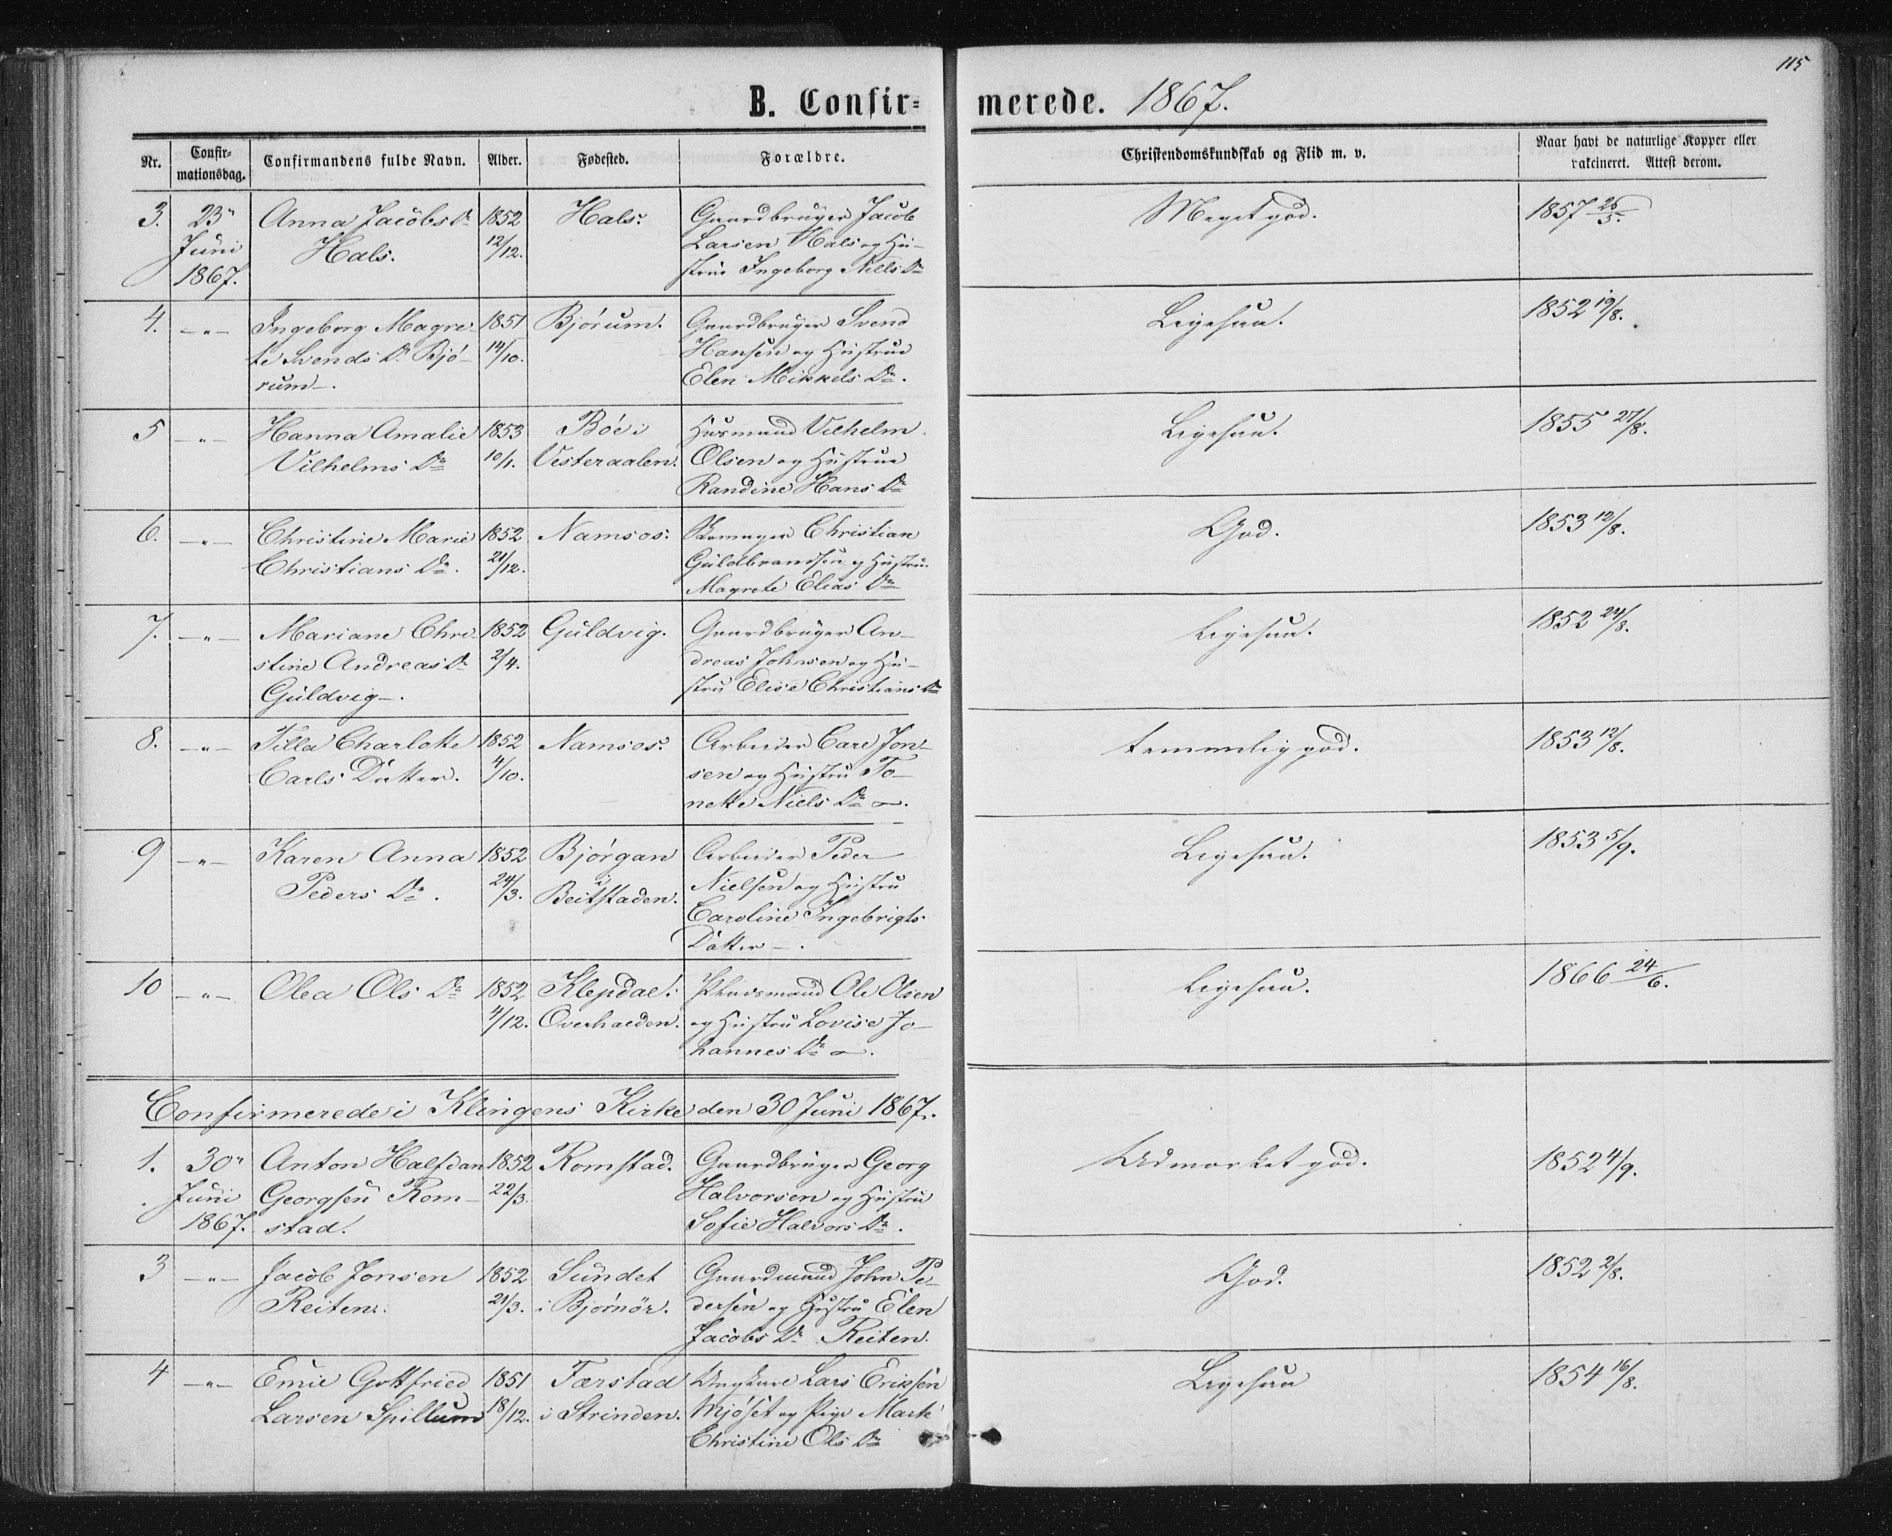 115
B. Confirmerede. 1867.
Nr. Confirmationsdag. Confirmandens fulde Navn. Alder. Fødested. Forældre. Christendomskundskab og Flid m. v. Naar havt de naturlige Kopper eller vakcineret. Attest derom.
3. 23" Anna Jacobs Dr 1852 Hals. Gaardbruger Jacob Meget god. 1857 26/5.
Juni Hals. 12/12. Larsen Hals og Hu-
1867. strue Ingeborg Niels Dr
4. -"- Ingeborg Magre 1851 Bjørum. Gaardbruger Svend Ligesaa. 1852 19/8.
te Svends Dr Bjø- 14/10. Hansen og Hustrue
rum-. Elen Mikkels Dr.
5 -"- Hanna Amalie 1853 Bøe i Husmand Vilhelm Ligesaa. 1855 27/8.
Vilhelms Dr 10/1. Vesteraalen. Olsen og Hustrue
Randine Hans Dr
6. -"- Christine Marie 1852 Namsos. Christian God. 1853 12/8.
Christians Dr. 21/12. Guldbrandsen og Hustru
Magrete Elias Dr
7. -"- Mariane Chri 1852 Guldvig. Gaardbruger An- Ligesaa. 1852 24/8.
stine Andreas Dr 2/4. dreas Johnsen og Hu-
Guldvig-. stru Elise Christians Dr
8. -"- Tilla Charlotte 1852 Namsos. Arbeider Carl Jon- temmelig god. 1853 12/8.
Carls Datter. 4/10. sen og Hustru To-
nette Niels Dr.
9 -"- Karen Anna 1852 Bjørgan Arbeider Peder Ligesaa. 1853 5/9.
Peders Dr. 24/3. i Nielsen og Hustru
Beitstaden. Caroline Ingebrigts
Datter-.
10 -"- Olea Ols Dr 1852 Klepdal i Pladsmand Ole Olsen Ligesaa. 1866 24/6.
4/12. Overhalden. og Hustru Lovise Jo-
hannes Dr.
Confirmerede i Klingens Kirke den 30 Juni 1867.
1. 30" Anton Halfdan 1852 Romstad. Gaardbruger Georg Udmærket god. 1852 4/9.
Juni Georgsen Rom- 22/3. Halvorsen og Hustru
1867. stad. Sofie Halvors Dr.
3 -"- Jacob Jonsen 1852 Sundet Gaardmand John Pe- God. 1852 2/8.
Reiten. 21/3. i Bjørnör. dersen og Hustru Elen
Jacobs Dr Reiten.
4 -"- Emil Gottfried 1851 Færstad Ungkarl Lars Eriksen Ligesaa 1854 16/8.
Larsen Spillum 18/12. i Strinden. Mjøset og Pige Marte
Christine Ols Dr